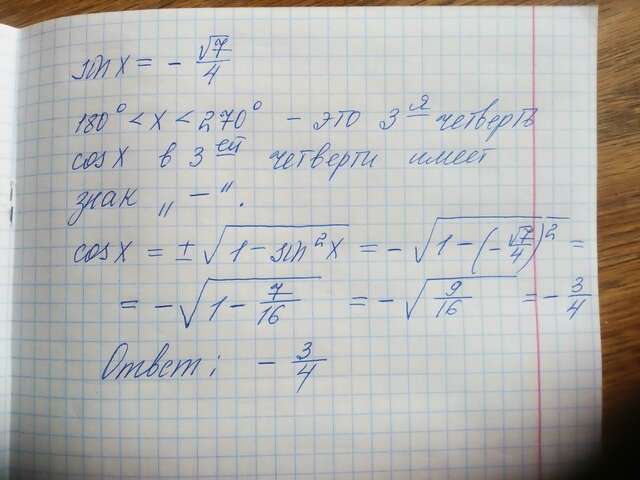 sin x = - √7/4
180° < x < 270° - это 3я четверть
cos x в 3ей четверти имеет
знак „ - ".
cos x = ± √(1 - sin²x) = - √(1 - (-√7/4)²) =
= - √(1 - 7/16) = - √(9/16) = - 3/4
Ответ: - 3/4